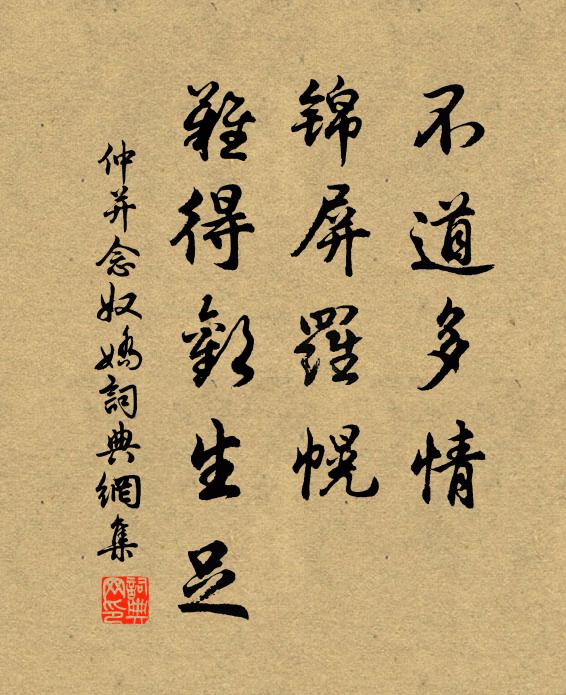 不道多情
錦屏羅幌
難得歡生足
仲并念奴嬌詞典網集
詞典网印